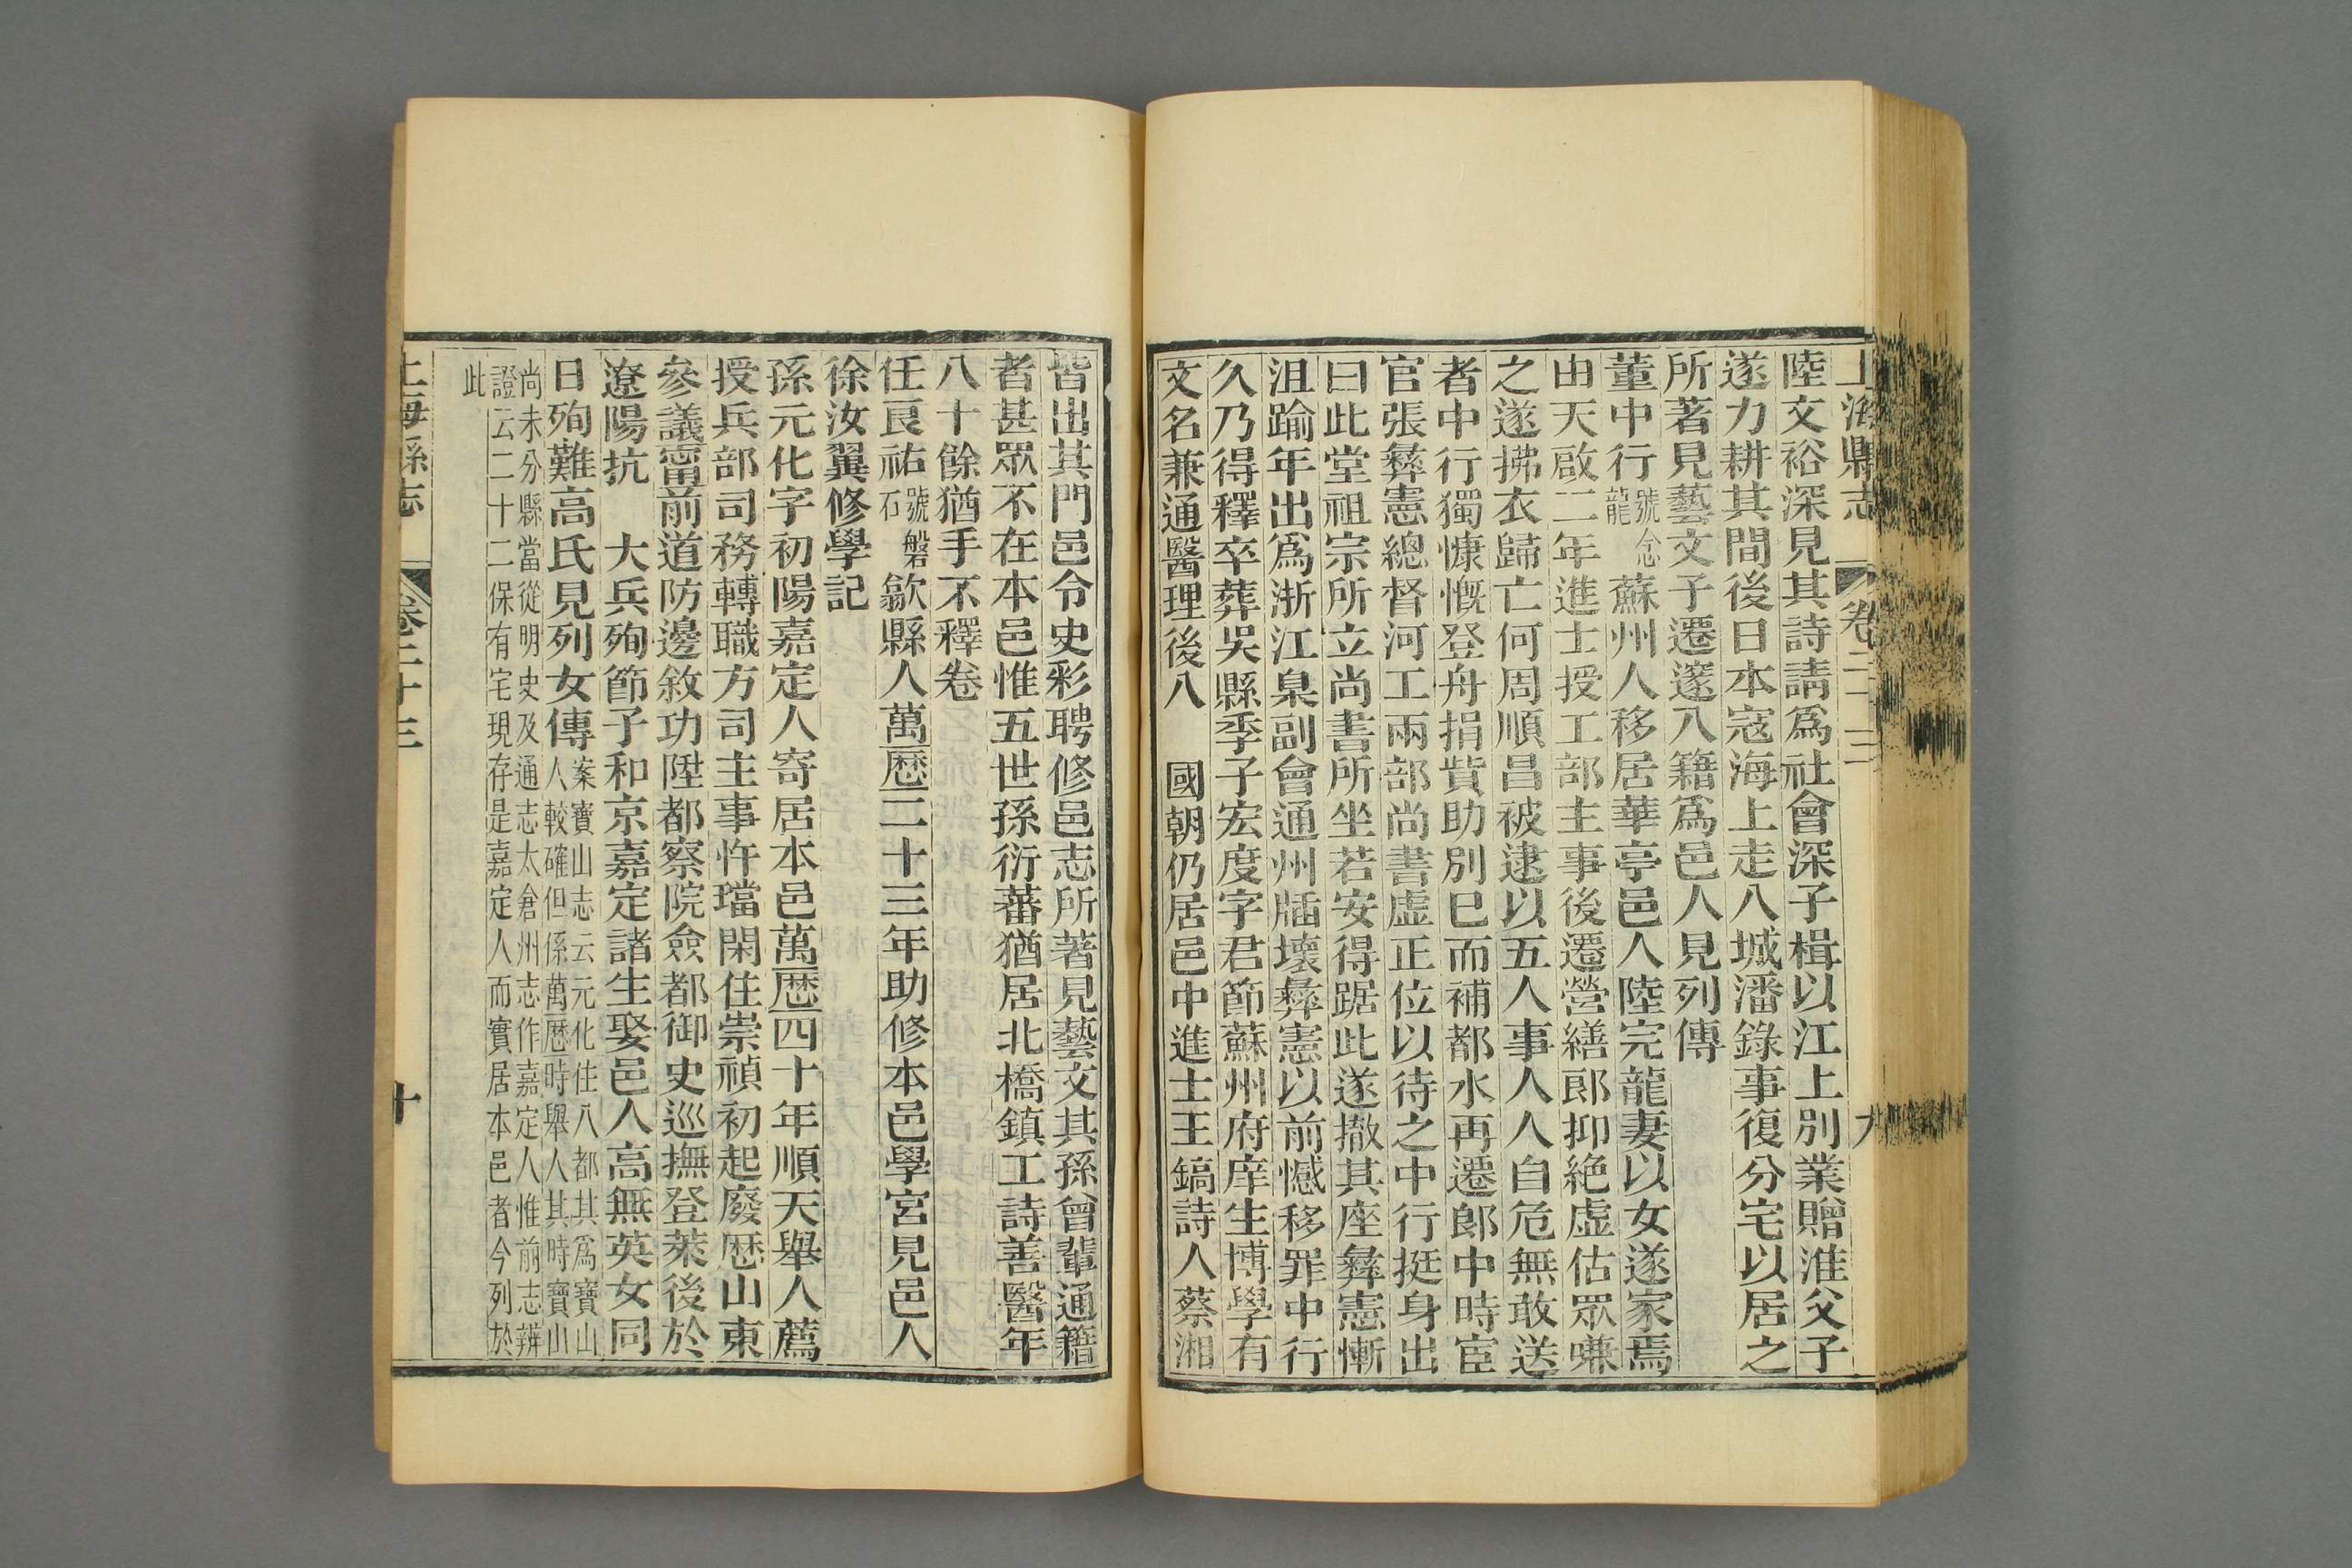 上海縣志 卷二十三 九
陸文裕深見其詩請爲社會深子楫以江上別業贈淮父子
遂力耕其間後日本寇海上走入城潘錄事復分宅以居之
所著見藝文子遷邃入籍爲邑人見列傳
董中行號念龍蘇州人移居華亭邑人陸完龍妻以女遂家焉
由天啟二年進士授工部主事後遷營繕郎抑絶虛估眾嗛
之遂拂衣歸亡何周順昌被逮以五人事人人自危無敢送
者中行獨慷慨登舟捐貲助別巳而補都水再遷郎中時宦
官張彝憲總督河工兩部尚書虛正位以待之中行挺身出
曰此堂祖宗所立尚書所坐若安得踞此遂撤其座彝憲慚
沮踰年出爲浙江臬副會通州牐壞彝憲以前憾移罪中行
久乃得釋卒葬吳縣季子宏度字君節蘇州府庠生博學有
文名兼通醫理後入 國朝仍居邑中進士王鎬詩人蔡湘
皆出其門邑令史彩聘修邑志所著見藝文其孫曾輩通籍
者甚眾不在本邑惟五世孫衍蕃猶居北橋鎮工詩善醫年
八十餘猶手不釋卷
任良祐號磐石歙縣人萬歷二十三年助修本邑學宮見邑人
徐汝翼修學記
孫元化字初陽嘉定人寄居本邑萬歷四十年順天舉人薦
授兵部司務轉職方司主事忤璫閑住崇禎初起廢歷山東
參議甯前道防邊敘功陞都察院僉都御史巡撫登萊後於
遼陽抗 大兵殉節子和京嘉定諸生娶邑人高無英女同
日殉難高氏見列女傳案寶山志云元化住八都其爲寶山人較確但係萬歷時舉人其時寶山
尚未分縣當從明史及通志太倉州志作嘉定人惟前志辨
證云二十二保有宅現存是嘉定人而實居本邑者今列於
此
上海縣志 卷二十三 十